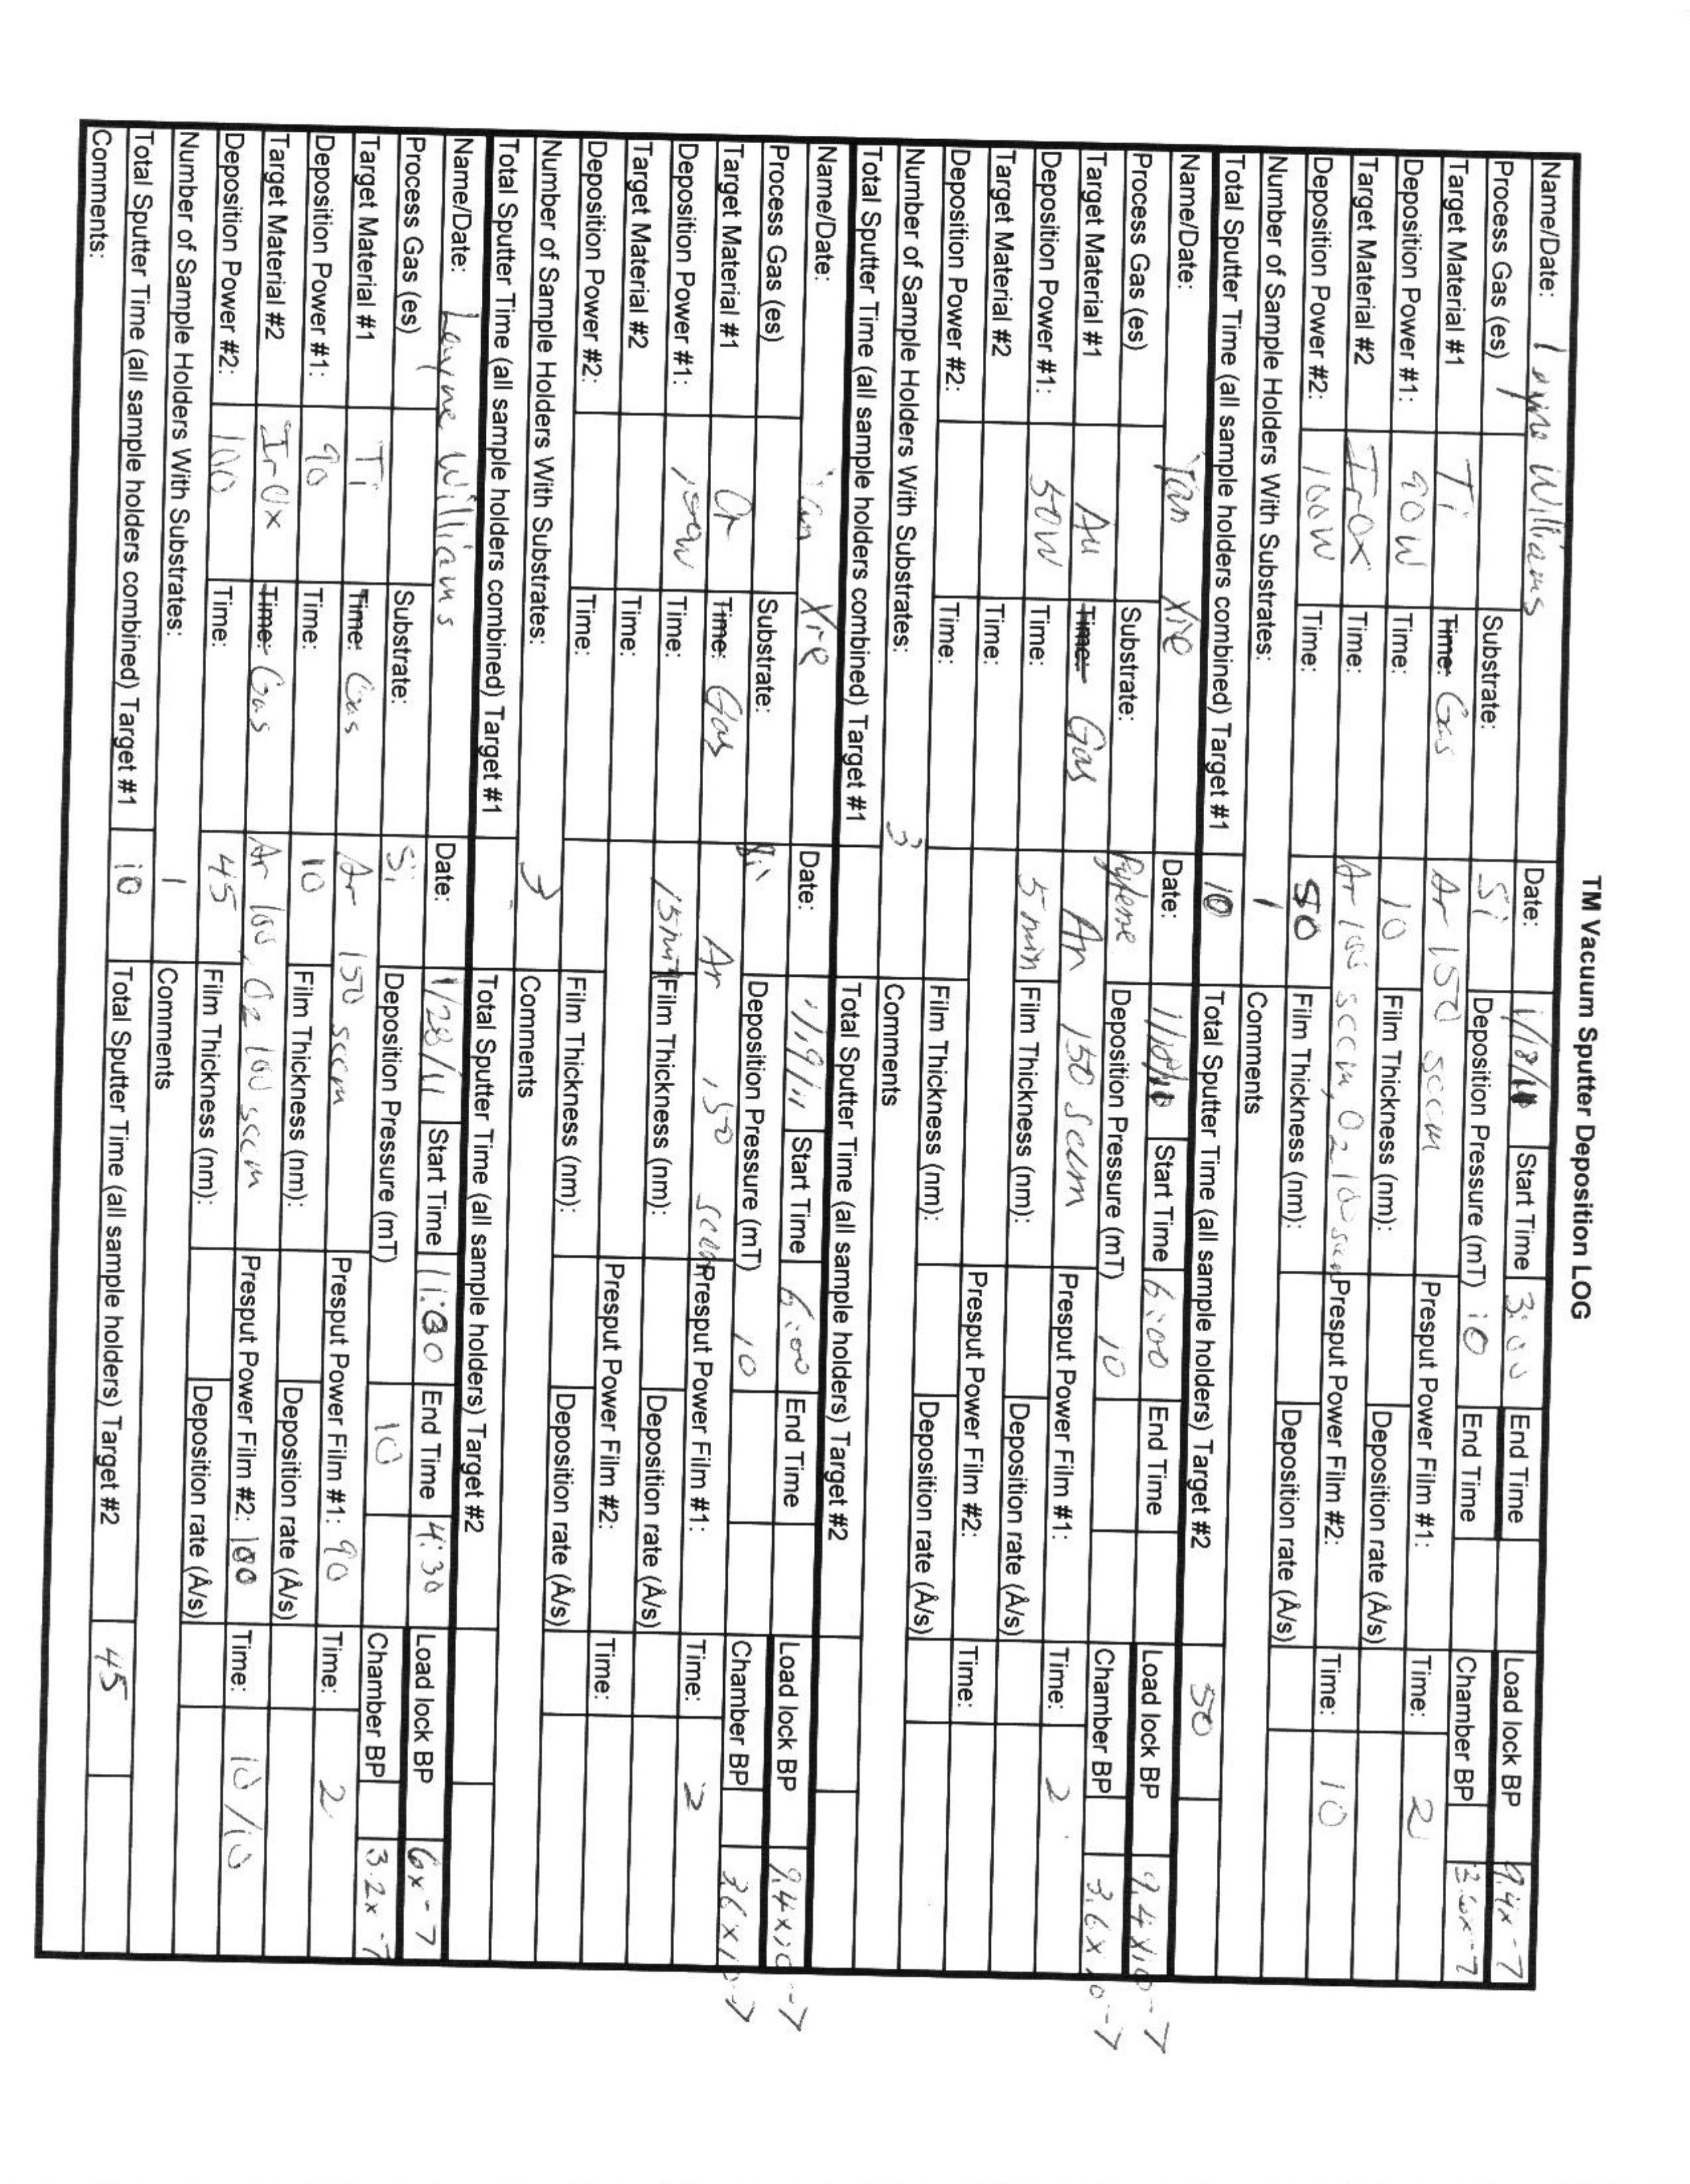 TM Vacuum Sputter Deposition LOG
Name/Date: Layne Williams Date: 1/18/11 Start Time 3:00 End Time Load lock BP 9.4x-7
Process Gas (es) Substrate: Si Deposition Pressure (mT) 10 End Time Chamber BP 3.6x-7
Target Material #1 Ti Time: Gas Ar 150 sccm Presput Power Film #1: Time: 2
Deposition Power #1: 90W Time: 10 Film Thickness (nm): Deposition rate (Å/s)
Target Material #2 IrOx Time: Ar 100 sccm, O2 100 sccm Presput Power Film #2: Time: 10
Deposition Power #2: 100W Time: 50 Film Thickness (nm): Deposition rate (Å/s)
Number of Sample Holders With Substrates: 1 Comments
Total Sputter Time (all sample holders combined) Target #1 10 Total Sputter Time (all sample holders) Target #2 50
Name/Date: Yan Xie Date: Start Time 6:00 End Time Load lock BP 9.4x10-7
Process Gas (es) Substrate: Deposition Pressure (mT) 10 Chamber BP 3.6x10-7
Target Material #1 Au Time: Gas Ar 150 sccm Presput Power Film #1: Time: 2
Deposition Power #1: 50W Time: 5 min Film Thickness (nm): Deposition rate (Å/s)
Target Material #2 Time: Presput Power Film #2: Time:
Deposition Power #2: Time: Film Thickness (nm): Deposition rate (Å/s)
Number of Sample Holders With Substrates: 3 Comments
Total Sputter Time (all sample holders combined) Target #1 Total Sputter Time (all sample holders) Target #2
Name/Date: Yan Xie Date: 1/19/11 Start Time 6:00 End Time Load lock BP 9.4x10-7
Process Gas (es) Substrate: Si Deposition Pressure (mT) 10 Chamber BP 3.6x10-7
Target Material #1 Cr Time: Gas Ar 150 sccm Presput Power Film #1: Time: 2
Deposition Power #1: Time: 15min Film Thickness (nm): Deposition rate (Å/s)
Target Material #2 Time: Presput Power Film #2: Time:
Deposition Power #2: Time: Film Thickness (nm): Deposition rate (Å/s)
Number of Sample Holders With Substrates: 3 Comments
Total Sputter Time (all sample holders combined) Target #1 Total Sputter Time (all sample holders) Target #2
Name/Date: Layne Williams Date: 1/28/11 Start Time 11:30 End Time 4:30 Load lock BP 6x-7
Process Gas (es) Substrate: Si Deposition Pressure (mT) 10 Chamber BP 3.2x-7
Target Material #1 Ti Time: Gas Ar 150 sccm Presput Power Film #1: 90 Time: 2
Deposition Power #1: 90 Time: 10 Film Thickness (nm): Deposition rate (Å/s)
Target Material #2 IrOx Time: Gas Ar 100, O2 100 sccm Presput Power Film #2: 100 Time: 10/10
Deposition Power #2: 100 Time: 45 Film Thickness (nm): Deposition rate (Å/s)
Number of Sample Holders With Substrates: 1 Comments
Total Sputter Time (all sample holders combined) Target #1 10 Total Sputter Time (all sample holders) Target #2 45
Comments: